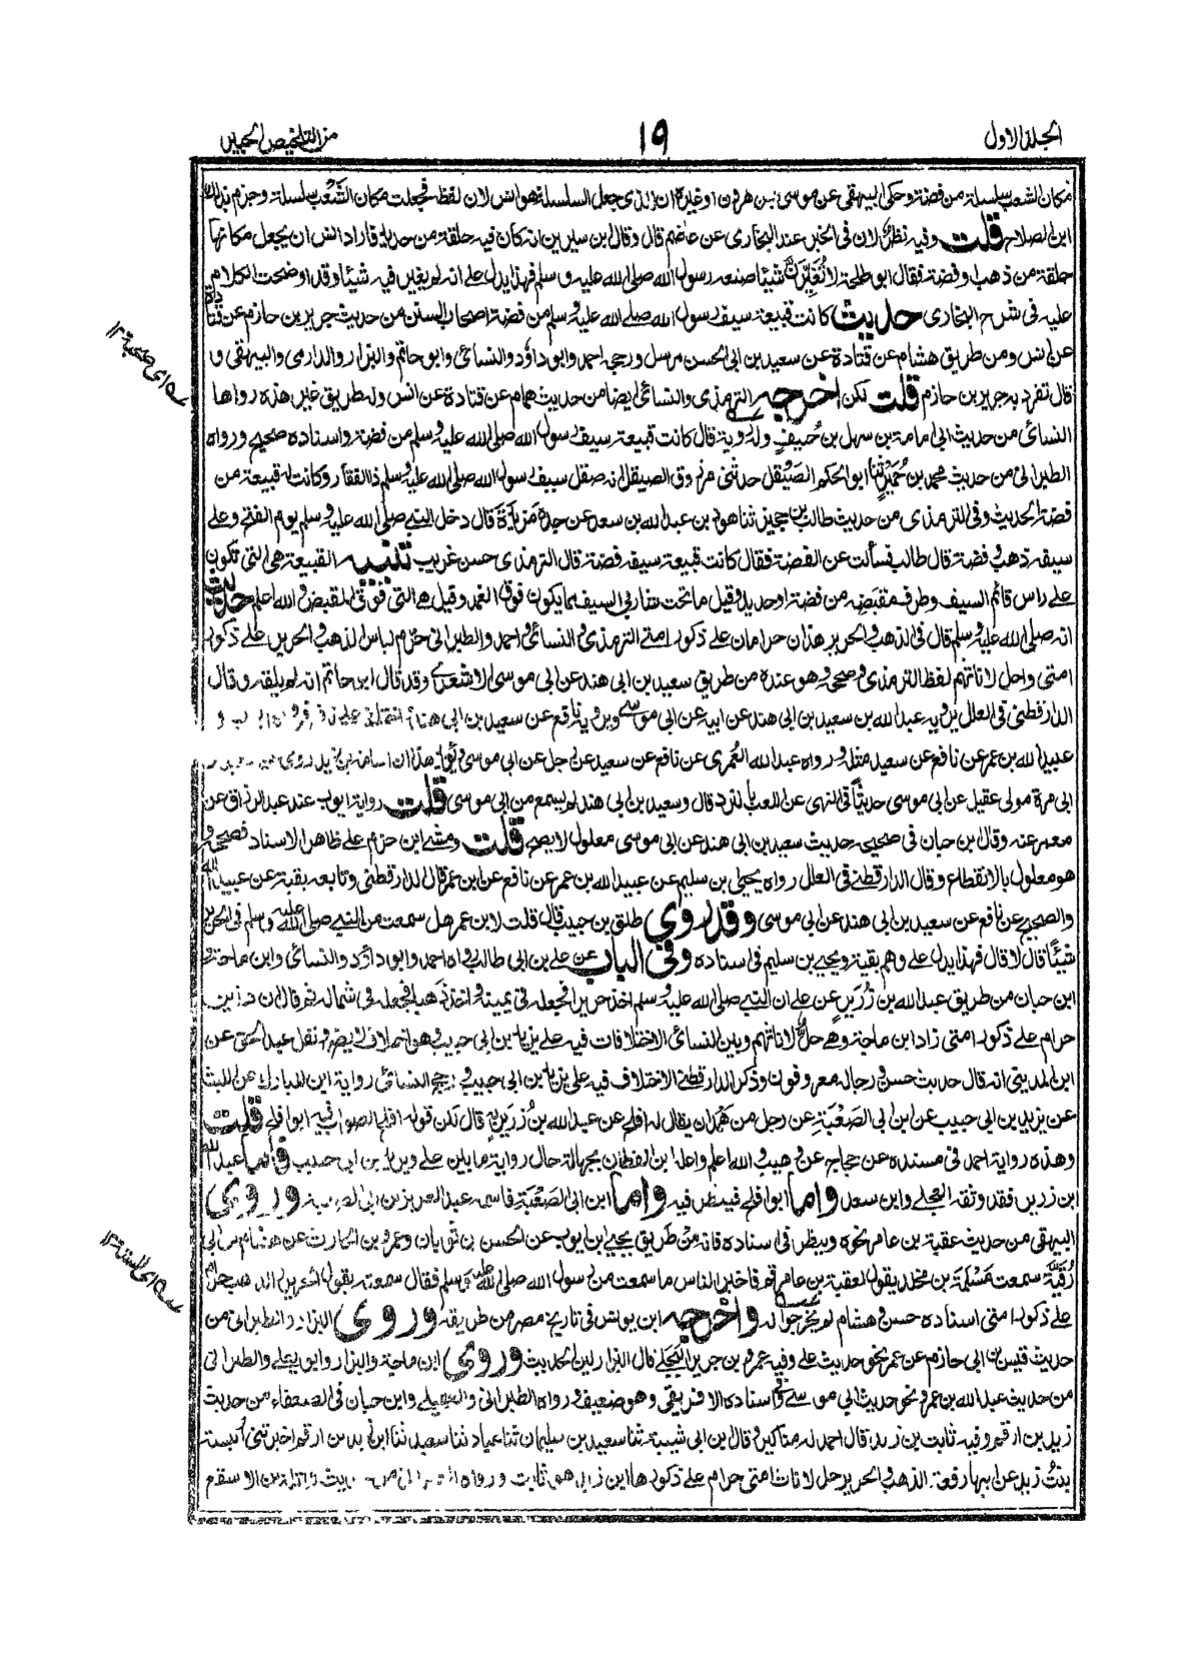 الجلد الاول
١٩
من التلخيص الحبير
مكان الشعب سلسلة من فضة وحكى البيهقى عن موسى بن هرون اوغيره ان الذى جعل السلسلة هوانس لان لفظه فجعلت مكان الشَعْب سلسلة وجزم بذلك
ابن الصلاح قلت وفيه نظر لان فى الخبر عند البخارى عن عاصم قال وقال ابن سيرين انه كان فيه حلقة من حديد فاراد انس ان يجعل مكانها
حلقة من ذهب او فضة فقال ابو طلحة لا تُغَيِّرَنَّ شيئا صنعه رسول الله صلى الله عليه وسلم فهذا يدل على انه لم يغير فيه شيئا وقد اوضحت الكلام
عليه فى شرح البخارى حديث كانت قبيعة سيف رسول الله صلى الله عليه وسلم من فضة اصحاب السنن من حديث جرير بن حازم عن قتادة
عن انس ومن طريق هشام عن قتادة عن سعيد بن ابى الحسن مرسل ورجحه احمد وابو داؤد والنسائى وابو حاتم والبزار والدارمى والبيهقى و
قال تفرد به جرير بن حازم قلت لكن اخرجه الترمذى والنسائى ايضا من حديث همام عن قتادة عن انس وله طريق غير هذه رواها
النسائى من حديث ابى امامة بن سهل بن حُنيفٍ وله روية قال كانت قبيعة سيف رسول الله صلى الله عليه وسلم من فضة واسناده صحيح ورواه
الطبرانى من حديث محمد بن حُمَيْرٍ ثنا ابو الحكم الصَيْقل حدثنى مرزوق الصيقل انه صقل سيف رسول الله صلى الله عليه وسلم ذا الفقار وكانت له قبيعة من
فضة الحديث وفى الترمذى من حديث طالب بن حجير ثنا هود بن عبد الله بن سعد عن جده مَزِيْدَةَ قال دخل النبى صلى الله عليه وسلم يوم الفتح وعلى
سيفه ذهب وفضة قال طالب فسألت عن الفضة فقال كانت قبيعة سيفه فضة قال الترمذى حسن غريب تنبيه القبيعة هى التى تكون
على راس قائم السيف وطرف مقبضه من فضة او حديد وقيل ما تحت شاربى السيف مما يكون فوق الغمد وقيل هى التى فوق المقبض والله اعلم حديث
انه صلى الله عليه وسلم قال فى الذهب والحرير هذان حرامان على ذكور امتى الترمذى والنسائى واحمد والطبرانى حُرّم لباس الذهب والحرير على ذكور
امتى واحل لاناثهم لفظ الترمذى وصححه وهو عنده من طريق سعيد بن ابى هند عن ابى موسى الاشعرى وقد قال ابن ابى حاتم انه لم يلقه وقال
الدارقطنى فى العلل يرويه عبد الله بن سعيد بن ابى هند عن ابيه عن ابى موسى ويرويه نافع عن سعيد بن ابى هند
عبيد الله بن عمر عن نافع عن سعيد مثله ورواه عبد الله العُمرى عن نافع عن سعيد عن رجل عن ابى موسى
ابى مرة مولى عقيل عن ابى موسى حديثاً فى النهى عن اللعب بالنرد قال وسعيد بن ابى هند لم يسمع من ابى موسى قلت رواية ايوب عند عبد الرزاق عن
معمر عنه وقال ابن حبان فى صحيحه حديث سعيد بن ابى هند عن ابى موسى معلول لا يصح قلت ومشى ابن حزم على ظاهر الاسناد فصححه و
هو معلول بالانقطاع وقال الدارقطنى فى العلل رواه يحيى بن سليم عن عبيد الله بن عمر عن نافع عن ابن عمر قال الدارقطنى وتابعه بقية عن عبيد الله
والصحيح عن نافع عن سعيد بن ابى هند عن ابى موسى وقد روى طلق بن حبيب قال قلت لابن عمر هل سمعت من النبى صلى الله عليه وسلم فى الحرير
شيئًا قال لا قال فهذا يدل على وهم بقية ويحيى بن سليم فى اسناده وفى الباب عن على بن ابى طالب رواه احمد وابو داؤد والنسائى وابن ماجة و
ابن حبان من طريق عبد الله بن زُرَيرٍ عن على ان النبى صلى الله عليه وسلم اخذ حريرا فجعله فى يمينه واخذ ذهبا فجعله فى شماله ثم قال ان هذين
حرام على ذكور امتى زاد ابن ماجة وهى حل لاناثهم وبين النسائى الاختلافات فيه على يزيد بن ابى حبيب وهو اختلاف لا يضر ونقل عبد الحق عن
ابن المدينى انه قال حديث حسن ورجاله معروفون وذكر الدارقطنى الاختلاف فيه على يزيد بن ابى حبيب ورجح النسائى رواية ابن المبارك عن الليث
عن يزيد بن ابى حبيب عن ابن ابى الصَعْبَةِ عن رجل من هَمْدان يقال له افلح عن عبد الله بن زُرَيرٍ به قال لكن قوله افلح الصواب فيه ابو افلح قلت
وهذه رواية احمد فى مسنده عن حجاج عن وهيب والله اعلم واعله ابن القطان بجهالة حال رواية ما بين على ويزيد بن ابى حبيب فاما عبد الله
ابن زرير فقد وثقه العجلى وابن سعد واما ابو افلح فينظر فيه واما ابن ابى الصَعْبَةِ فاسمه عبد العزيز بن ابى الصعبة وروى
البيهقى من حديث عقبة بن عامر نحوه وينظر فى اسناده فانه من طريق يحيى بن ايوب عن الحسن بن ثوبان وعمرو بن الحارث عن هشام بن ابى
رُقَيّة سمعت مَسْلَمَة بن مخلد يقول لعقبة بن عامر قم فاخبر الناس ما سمعت من رسول الله صلى الله عليه وسلم فقال سمعته يقول الحرير والذهب حرام
على ذكور امتى اسناده حسن وهشام لم يخرجوا له واخرجه ابن يونس فى تاريخ مصر من طريقه وروى البزار والطبرانى من
حديث قيس بن ابى حازم عن عمر نحو حديث على وفيه عمرو بن جرير البجلى قال البزار لين الحديث وروى ابن ماجة والبزار وابو يعلى والطبرانى
من حديث عبد الله بن عمرو نحو حديث ابى موسى وفى اسناده الافريقى وهو ضعيف ورواه الطبرانى والعقيلى وابن حبان فى الضعفاء من حديث
زيد بن ارقم وفيه ثابت بن زيد قال احمد له مناكير وقال ابن ابى شيبة ثنا سعيد بن سليمان ثنا عباد ثنا سعيد ثنا ابن زيد بن ارقم اخبرتنى انيسة
بنتُ زيد عن ابيها رفعه الذهب والحرير حل لاناث امتى حرام على ذكورها ابن زيد هو ثابت ورواه واثلة بن الاسقع